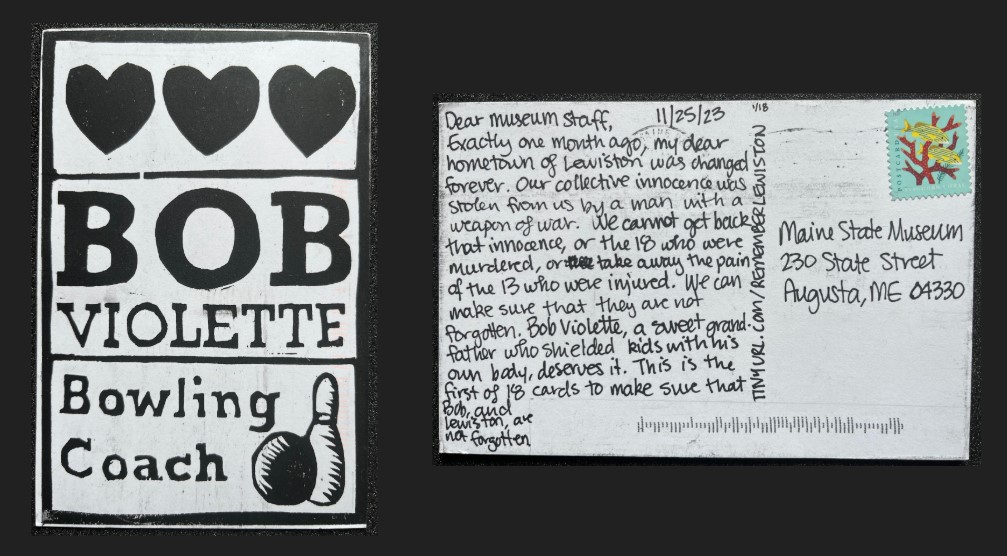 BOB
VIOLETTE
Bowling
Coach
Dear museum staff, 11/25/23
Exactly one month ago, my dear
hometown of Lewiston was changed
forever. Our collective innocence was
stolen from us by a man with a
weapon of war. We cannot get back
that innocence, or the 18 who were
murdered, or take away the pain
of the 13 who were injured. We can
make sure that they are not
forgotten. Bob Violette, a sweet grand-
father who shielded kids with his
own body, deserves it. This is the
first of 18 cards to make sure that
Bob, and
Lewiston, are
not forgotten
1/18
TINYURL.COM/REMEMBERLEWISTON
POSTCARD
Maine State Museum
230 State Street
Augusta, ME 04330